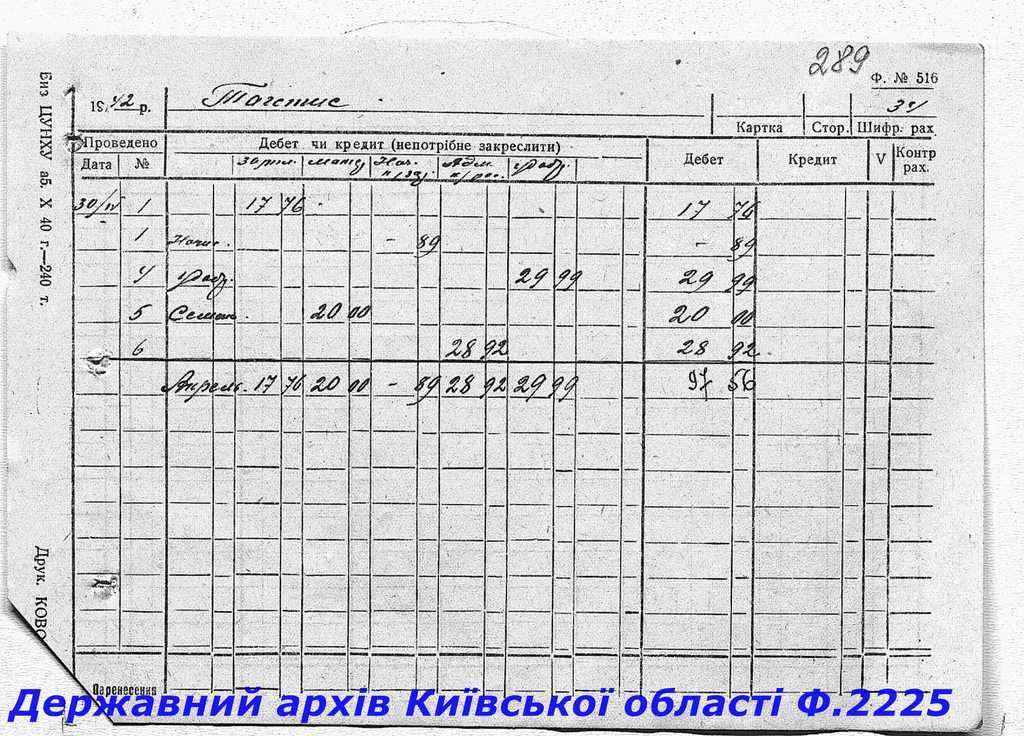 289
Ф. № 516
1942 р.
34
Картка Стор. Шифр. рах
Проведено Дебет чи кредит (непотрібне закреслити) Дебет Кредит V Контр рах.
Дата №
30/IV 1 17 76 17 76
1 - 89 - 89
4 29 99 29 99
5 20 00 20 00
6 28 92 28 92
Апрель 17 76 20 00 - 89 28 92 29 99 97 56
Перенесення
Биз ЦУНХУ аб. Х 40 г.—240 т.
Друк. КОВО
Державний архів Київської області Ф.2225